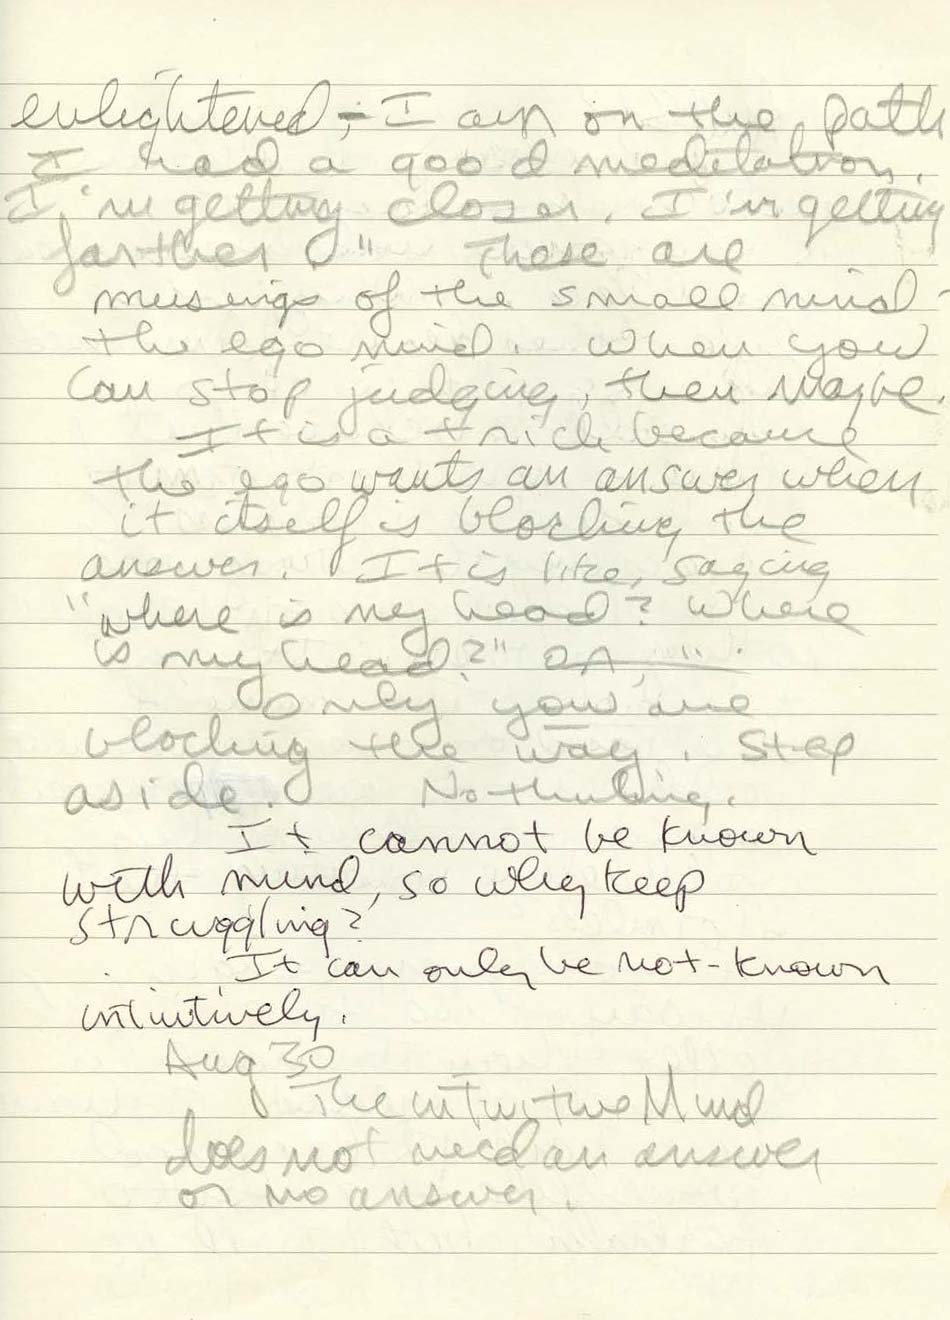 enlightened, - I am on the path
I had a good meditation.
I'm getting closer. I'm getting
farther." These are
musings of the small mind -
the ego mind. When you
can stop judging, then maybe.
It is a trick because
the ego wants an answer when
it itself is blocking the
answer. It is like, saying
"where is my head? Where
is my head?"
Only you are
blocking the way. Step
aside. No thinking.
It cannot be known
with mind, so why keep
struggling?
It can only be not-known
intuitively.
Aug 30
The intuitive Mind
does not need an answer
or no answer.